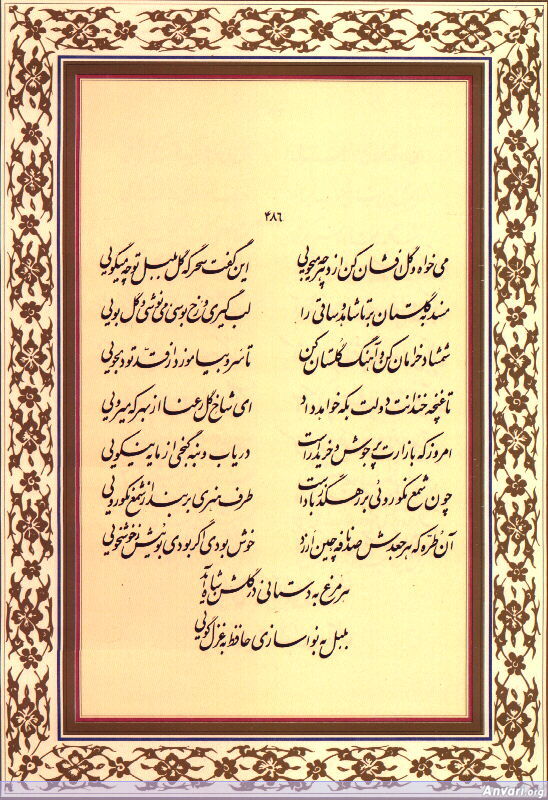 ۴۸۶
می خواه و گل افشان کن از دهر چه میجویی این گفت سحرگه گل بلبل تو چه میگویی
مسند به گلستان بر تا شاهد و ساقی را لب گیری و رخ بوسی می نوشی و گل بویی
شمشاد خرامان کن و آهنگ گلستان کن تا سرو بیاموزد از قد تو دلجویی
تا غنچه خندانت دولت به که خواهد داد ای شاخ گل رعنا از بهر که میرویی
امروز که بازارت پر جوش خریدار است دریاب و بنه گنجی از مایه نیکویی
چون شمع نکورویی بر رهگذر باد است طرف هنری بربند از شمع نکورویی
آن طره که هر جعدش صد نافه چین ارزد خوش بودی اگر بودی بوئیش ز خوشخویی
هر مرغ به دستانی در گلشن شاه آمد
بلبل به نواسازی حافظ به غزل گویی
Anvari.org